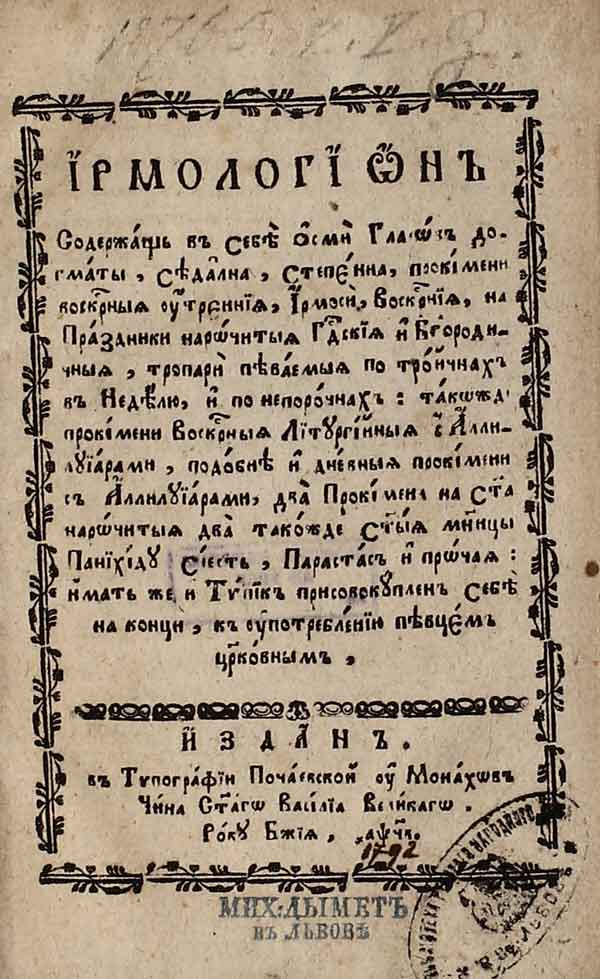 І҆РМОЛОГІ҆ Ѡ҆НЪ
Содержа́щъ въ Себѣ̀ Ѻ҆́смѝ Гла́сѡвъ до-
гма́ты, Сѣда̑лна, Степє́нна, прокі́мени
воскр҇ныѧ ᲂу҆́трєннїѧ, І҆рмосѝ, Воскр҇нїѧ, на
Пра́здники нарѡ́читыѧ Гд҇скїѧ и҆ Бг҃ороди-
чныѧ, тропарѝ пѣва́емыѧ по трⷪ҇ичнахъ
въ Недѣ́лю, и҆ по непоро́чнахъ: та́кѡжд
прокі́мени Воскр҇ныѧ Лїтургі́йныѧ с̾ А҆лли-
луїарами, подо́бнѣ и҆ дне́вныѧ прокі́мени
съ А҆ллилуїа́рами, два̀ Прокі́мена на Ст҃а
нарѡ́читыѧ два̀ тако́жде Ст҃ы́ѧ мн҃цы
Панїхі́ду Сі́есть, Параста́съ и҆ прѡ́чаѧ:
и҆́мать же и Тѷпі́къ присовокꙋ́плен Себѣ̀
на концѝ, къ ᲂу҆потребле́нїю пѣвцє́мъ
цр҃ко́внымъ,
И҆ З Д А́ Н Ъ.
въ Тѷпогра́фїи Поча́евской ᲂу҆ Мона́хѡвъ
Чи́на Ст҃а́гѡ Васи́лїа Вели́кагѡ.
Ро́кꙋ Бж҃їѧ, ҂аѱч҃в.
1792
МИХ: ДЫМЕТЪ
въ ЛЬВОВѢ